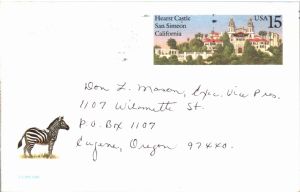 Hearst Castle
San Simeon
California
USA 15
Don L. Mason, Exc. Vice Pres.
1107 Wilamette St.
P.O. Box 1107
Eugene, Oregon 97440.